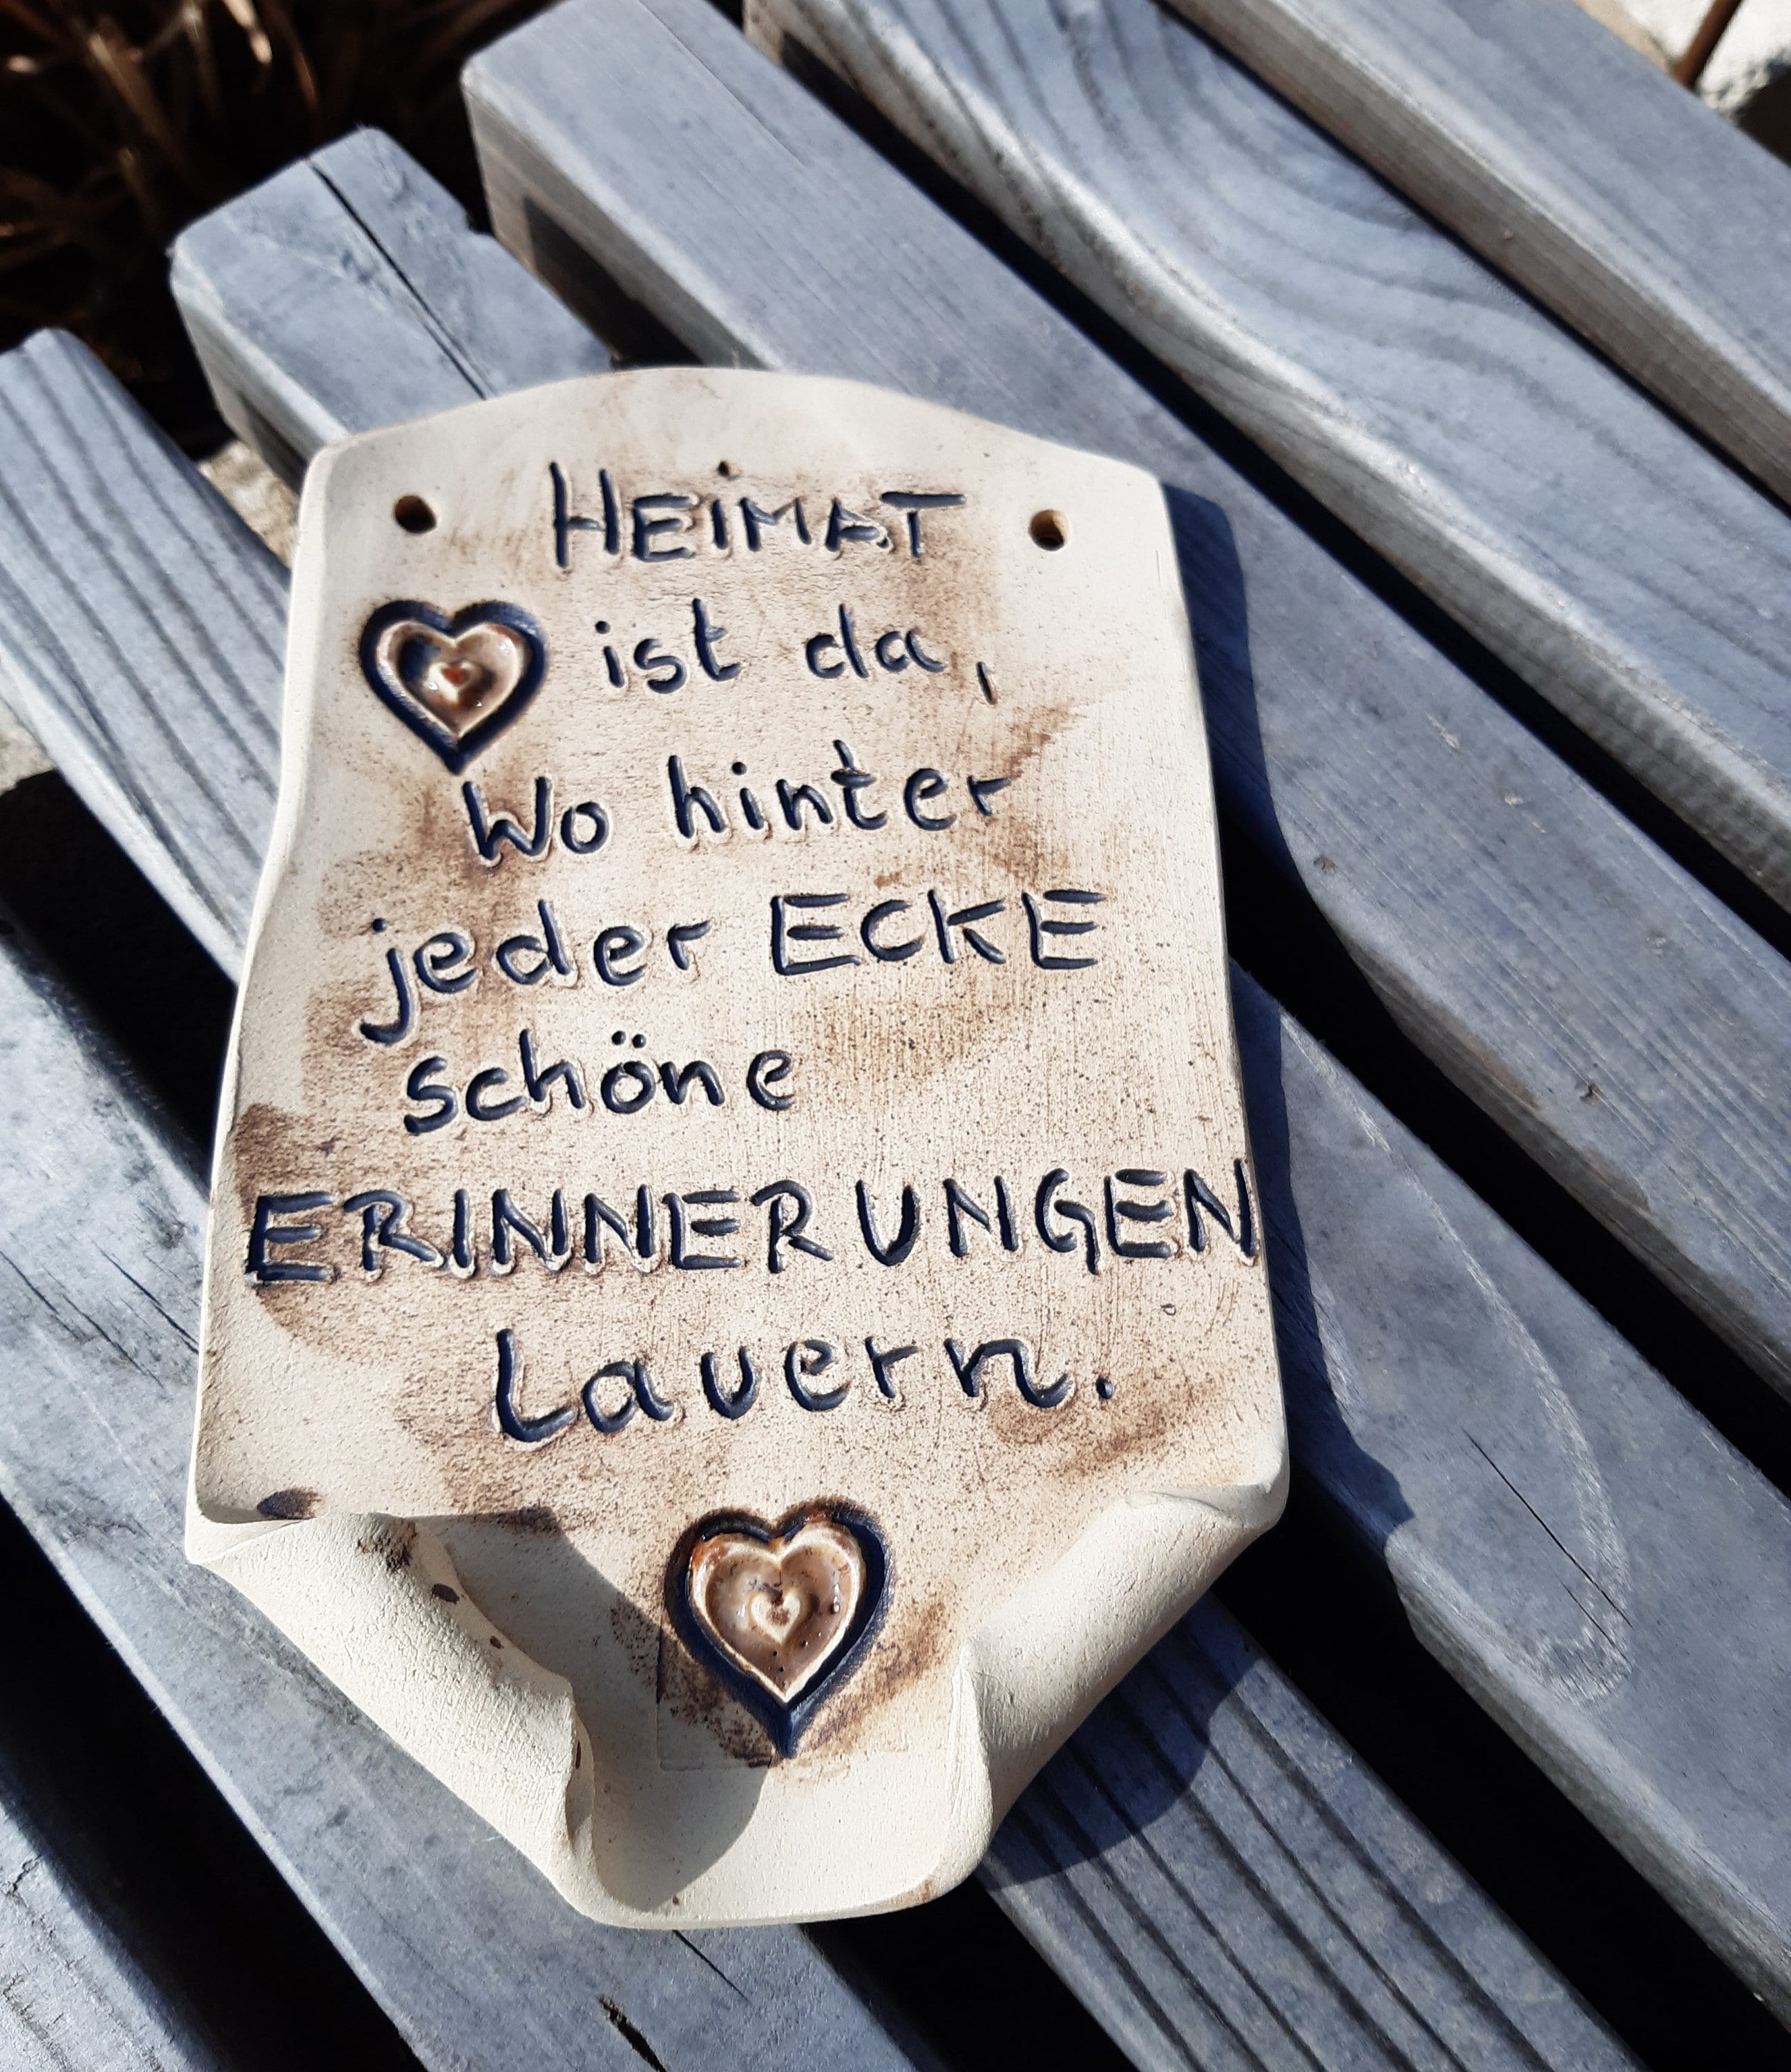 HEiMAT
ist da,
Wo hinter
jeder ECKE
schöne
ERINNERUNGEN
Lauern.